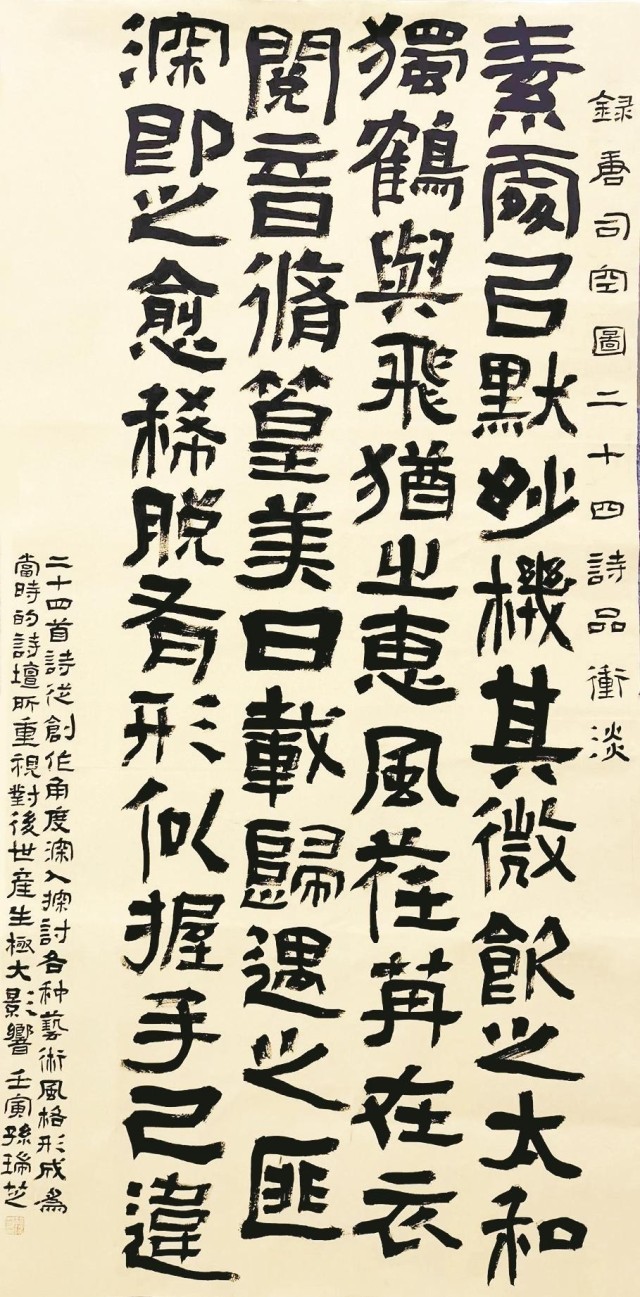 録唐司空圖二十四詩品衝淡
素處㠯默妙機其微飲之太和
獨鶴與飛猶之惠風荏苒在衣
閱音脩篁美曰載歸遇之匪
深即之愈稀脫有形似握手已違
二十四首詩從創作角度深入探討各种藝術風格形成為
當時的詩壇所重視對後世産生極大影響 壬寅孫瑞芝